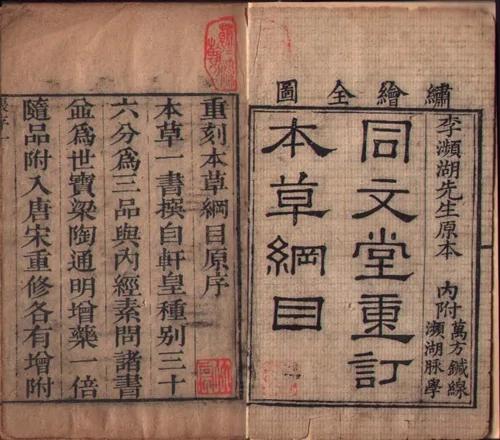 圖全繪繡
李瀕湖先生原本
內附萬方鍼線
瀕湖脈學
同文堂重訂
本草綱目
重刻本草綱目原序
本草一書撰自軒皇種别三十
六分為三品與內經素問諸書
並為世寶梁陶通明增藥一倍
隨品附入唐宋重修各有增附